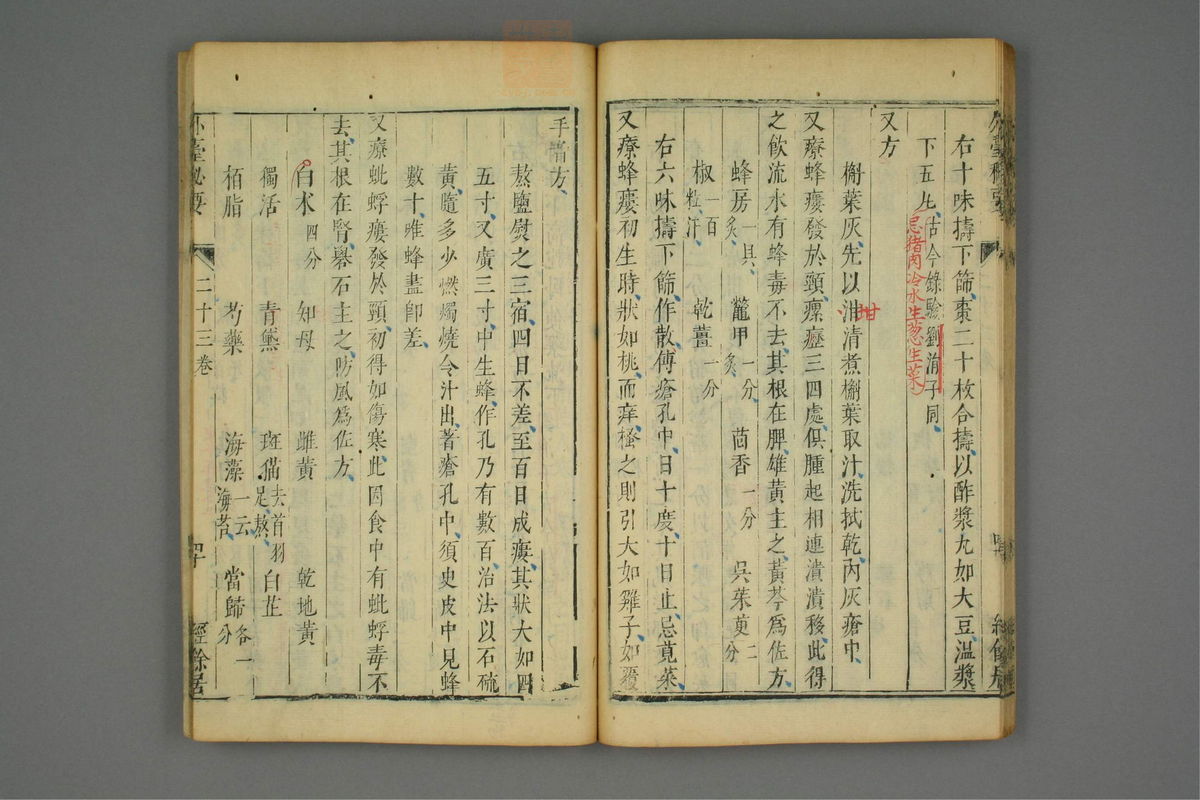 右十味擣下篩棗二十枚合擣以酢漿丸如大豆溫漿
下五丸古今錄驗劉涓子同
忌猪肉冷水生葱生菜
又方
槲葉灰先以泔清煮槲葉取汁洗拭乾內灰瘡中
又療蜂瘻發於頸瘰癧三四處俱腫起相連潰潰移此得
之飲流水有蜂毒不去其根在脾雄黃主之黃芩爲佐方
蜂房一具炙 鼈甲一分炙 茴香一分 吳茱萸二分
椒一百粒汗 乾薑一分
右六味擣下篩作散傅瘡孔中日十度十日止忌莧菜
又療蜂瘻初生時狀如桃而痒搔之則引大如雞子如覆
手者方
熬鹽熨之三宿四日不差至百日成瘻其狀大如四
五寸又廣三寸中生蜂作孔乃有數百治法以石硫
黃隨多少燃燭燒令汁出著瘡孔中須臾皮中見蜂
數十唯蜂盡卽差
又療蚍蜉瘻發於頸初得如傷寒此因食中有蚍蜉毒不
去其根在腎礜石主之防風爲佐方
白朮四分 知母 雌黃 乾地黃
獨活 青黛 斑猫去首羽足熬 白芷
栢脂 芍藥 海藻一云海苔 當歸各一分
外臺秘要 二十三卷 四十 經餘居